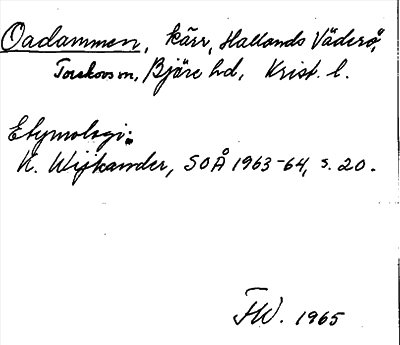 Oadammen, kärr, Hallands Väderö,
Torekovs m, Bjäre hd, Krist. l.
Etymologi:
K. Wijkander, SOÅ 1963-64, s. 20.
FW. 1965